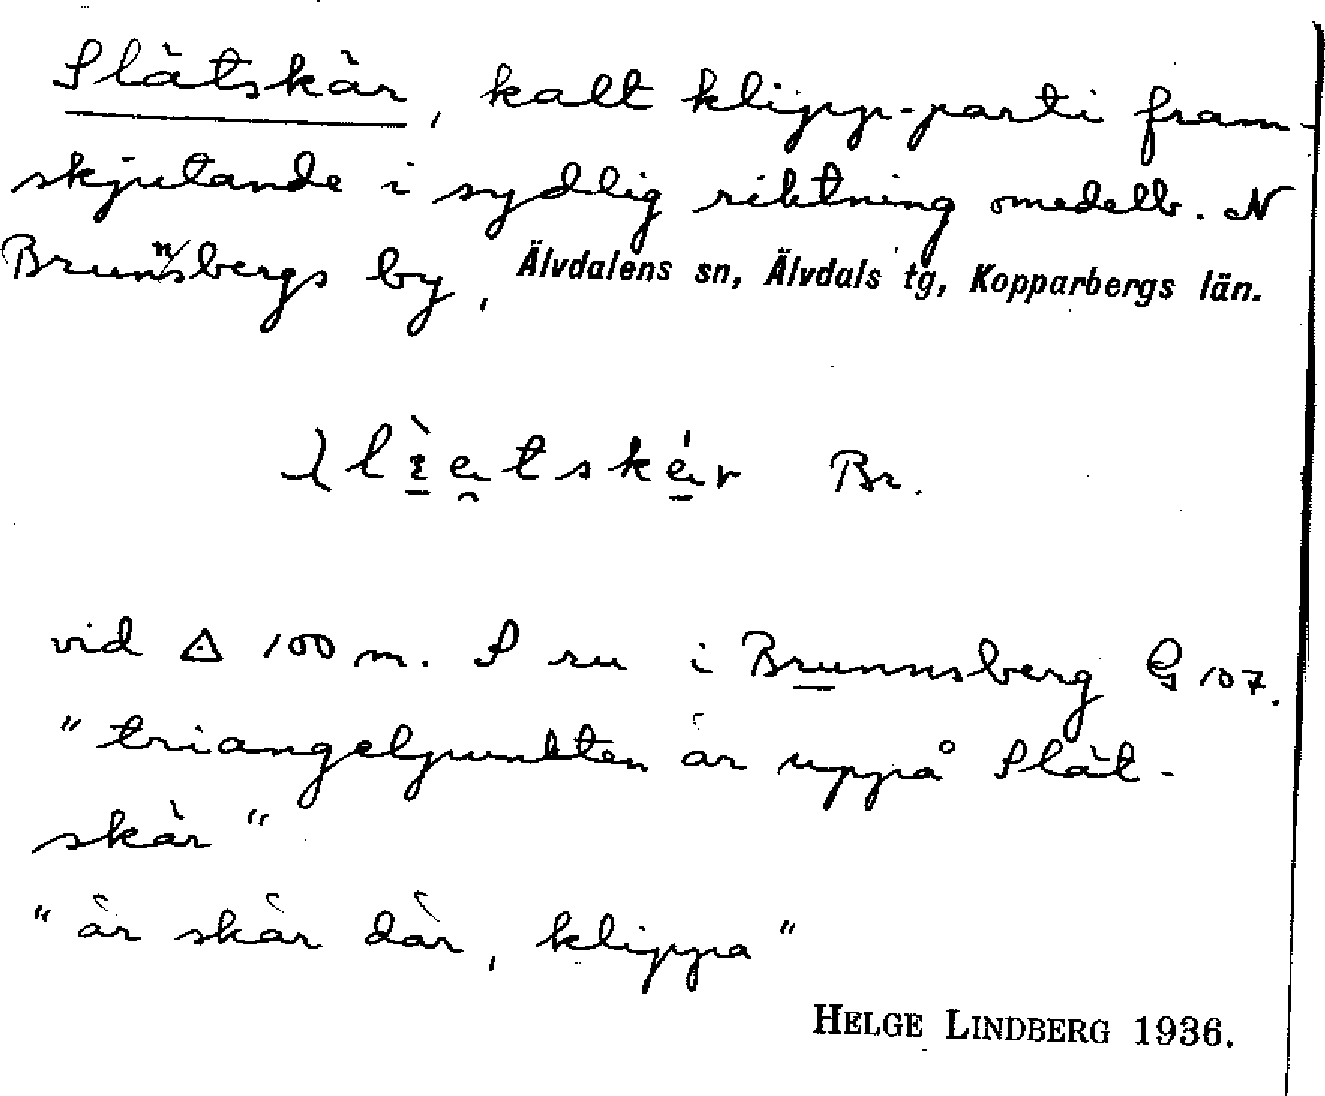 Slätskär, kalt klipp-parti fram-
skjutande i sydlig riktning omedelb. N
Brunnsbergs by, Älvdalens sn, Älvdals tg, Kopparbergs län.
Br.
vid △ 100 m. S ru i Brunnsberg G 107.
"triangelpunkten är uppå Slät-
skär"
"är skär där, klippa"
HELGE LINDBERG 1936.